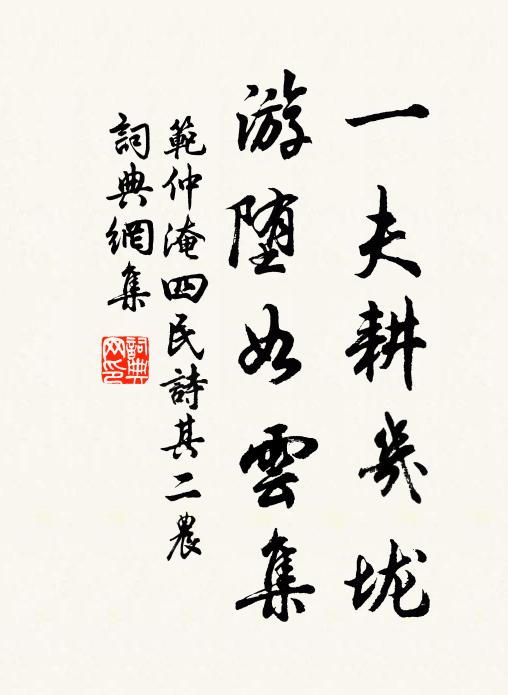 一夫耕幾垅
游堕如雲集
範仲淹四民詩其二農
詞典網集
詞典網印